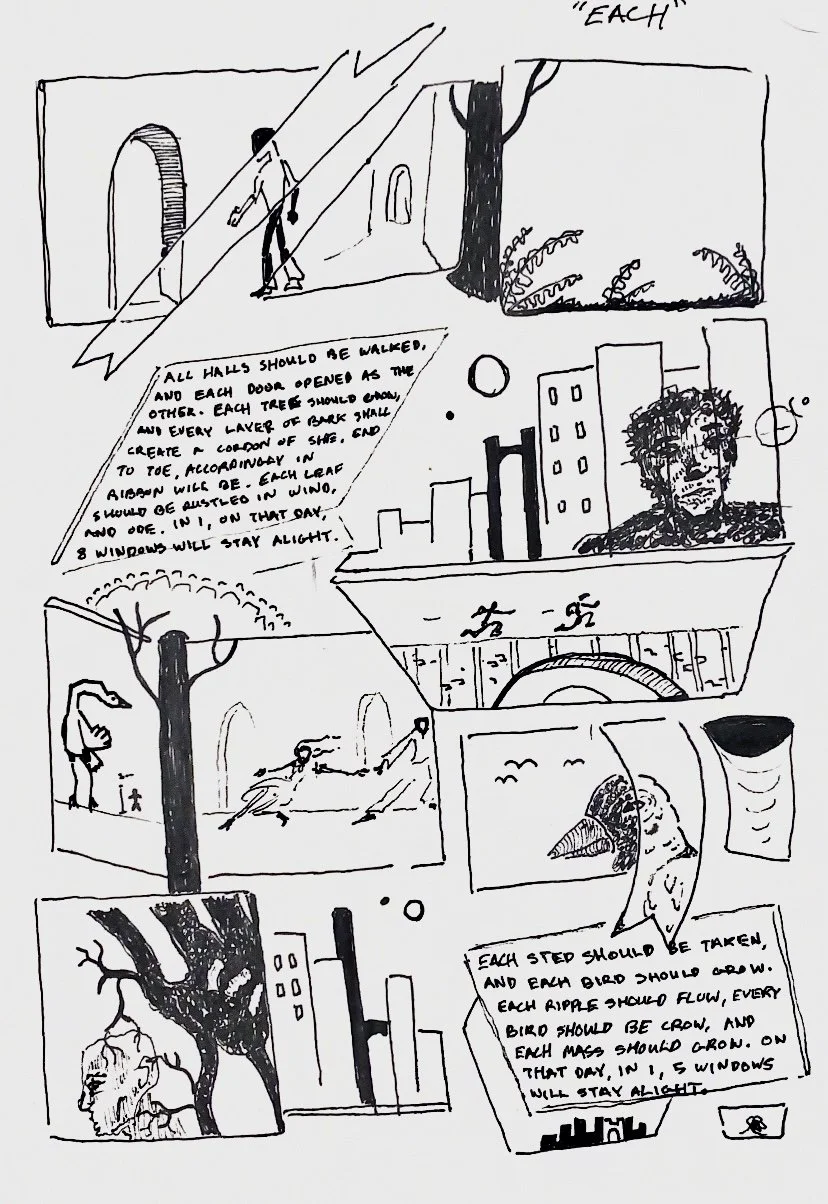 "EACH"
ALL HALLS SHOULD BE WALKED,
AND EACH DOOR OPENED AS THE
OTHER. EACH TREE SHOULD GROW,
AND EVERY LAYER OF BARK SHALL
CREATE A CORDON OF SHE. END
TO TOE, ACCORDINGLY IN
RIBBON WILL BE. EACH LEAF
SHOULD BE RUSTLED IN WIND,
AND ODE. IN 1, ON THAT DAY,
8 WINDOWS WILL STAY ALIGHT.
EACH STED SHOULD BE TAKEN,
AND EACH BIRD SHOULD GROW.
EACH RIPPLE SHOULD FLOW, EVERY
BIRD SHOULD BE CROW, AND
EACH MASS SHOULD GROW. ON
THAT DAY, IN 1, 5 WINDOWS
WILL STAY ALIGHT.